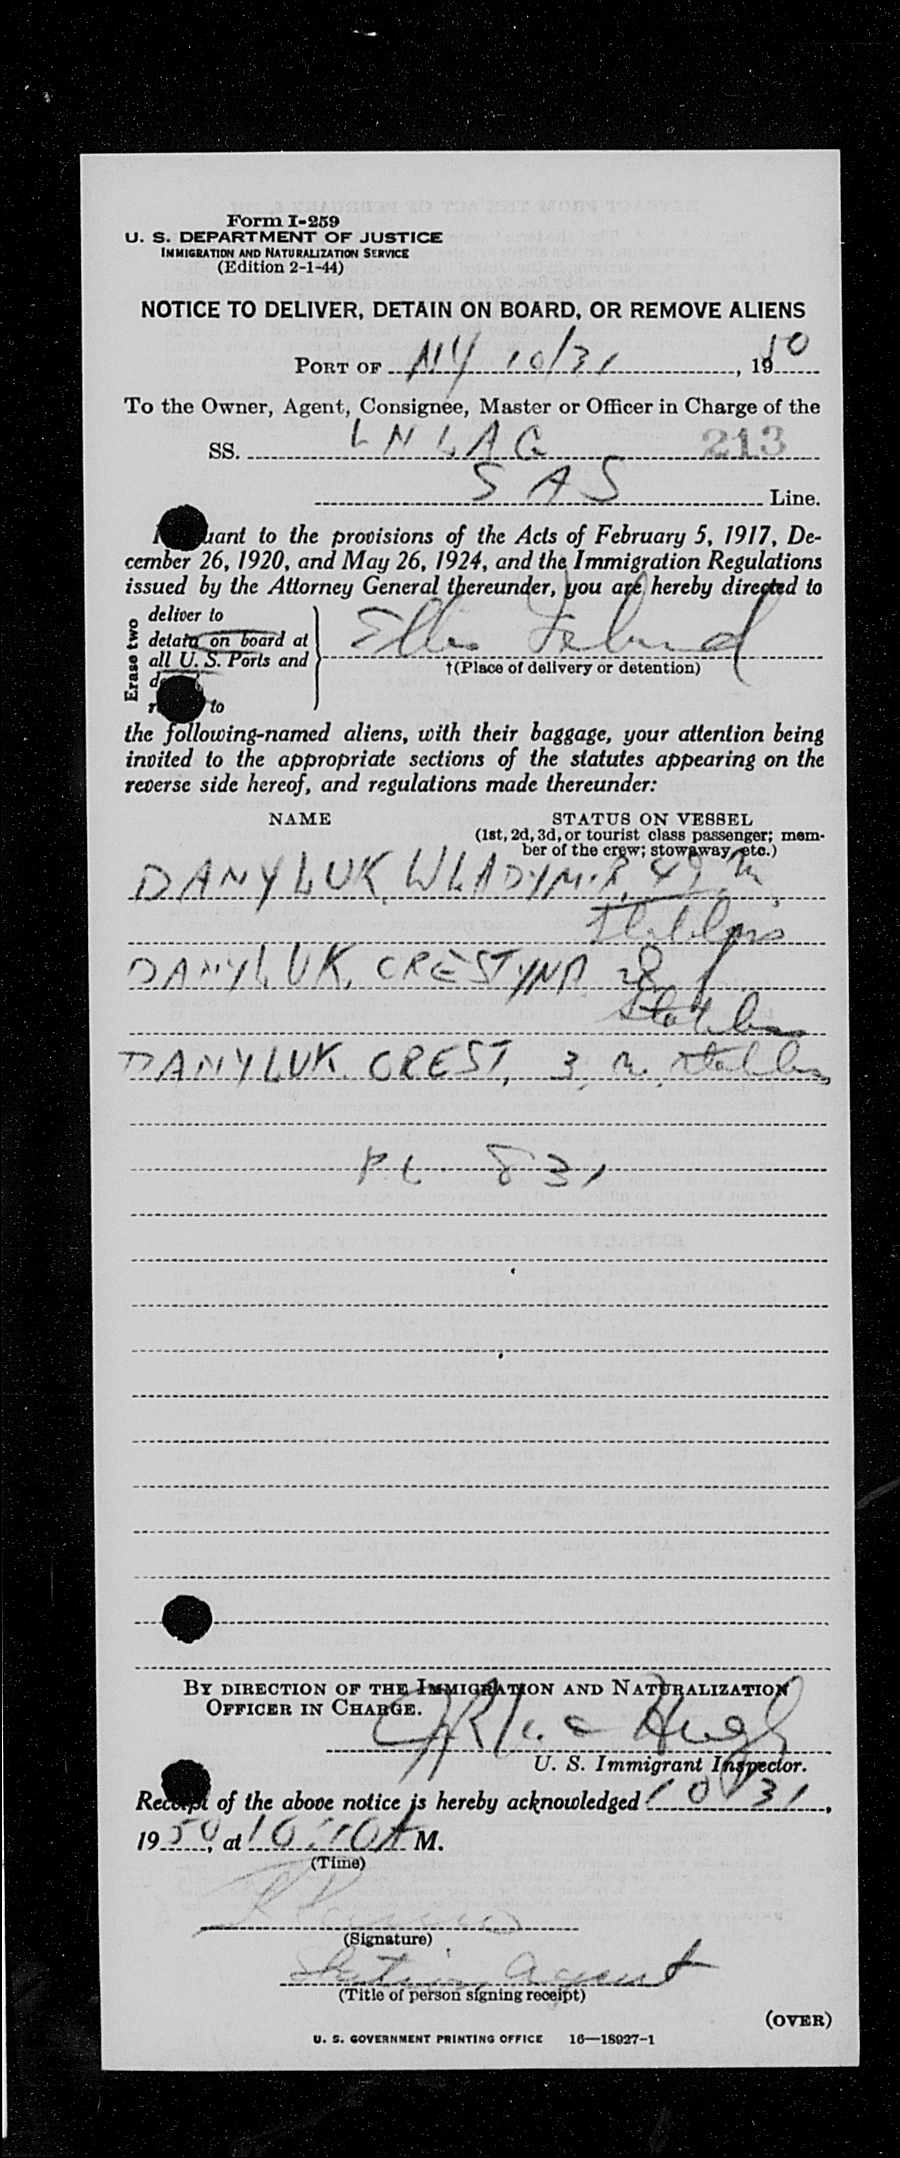 Form I-259
U. S. DEPARTMENT OF JUSTICE
IMMIGRATION AND NATURALIZATION SERVICE
(Edition 2-1-44)
NOTICE TO DELIVER, DETAIN ON BOARD, OR REMOVE ALIENS
PORT OF NY 10/31, 1950
To the Owner, Agent, Consignee, Master or Officer in Charge of the
SS. LNLAG 213
SAS Line.
to the provisions of the Acts of February 5, 1917, De-
cember 26, 1920, and May 26, 1924, and the Immigration Regulations
issued by the Attorney General thereunder, you are hereby directed to
Erase two
deliver to
detain on board at
all U. S. Ports and
to
Ellis Island
†(Place of delivery or detention)
the following-named aliens, with their baggage, your attention being
invited to the appropriate sections of the statutes appearing on the
reverse side hereof, and regulations made thereunder:
NAME STATUS ON VESSEL
(1st, 2d, 3d, or tourist class passenger; mem-
ber of the crew; stowaway, etc.)
DANYLUK, WLADYMIR, 49, m,
Stateless
DANYLUK, CRESTYNA 28 f
Stateless
DANYLUK. CREST, 3, m, Stateless
831
BY DIRECTION OF THE IMMIGRATION AND NATURALIZATION
OFFICER IN CHARGE.
Hugh
U. S. Immigrant Inspector.
Receipt of the above notice is hereby acknowledged 10/31,
1950, at 10:10 A M.
(Time)
(Signature)
Station Agent
(Title of person signing receipt)
(OVER)
U. S. GOVERNMENT PRINTING OFFICE 16—18927-1